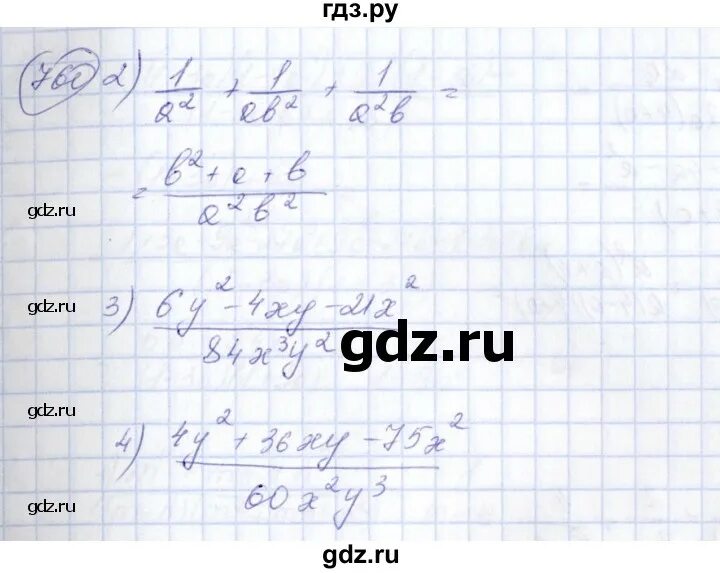 гдз.ру
760 2) 1/a² + 1/ab² + 1/a²b =
= (b² + a + b)/(a²b²)
gdz.ru
gdz.ru
3) (6y² - 4xy - 21x²)/(84x³y²)
gdz.ru
gdz.ru
gdz.ru
4) (4y² + 36xy - 75x²)/(60x²y³)
gdz.ru
gdz.ru
gdz.ru